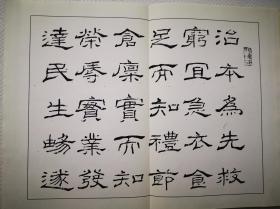 治本為先救
窮宜急衣食
足而知禮節
倉廩實而知
榮辱實業發
達民生暢遂